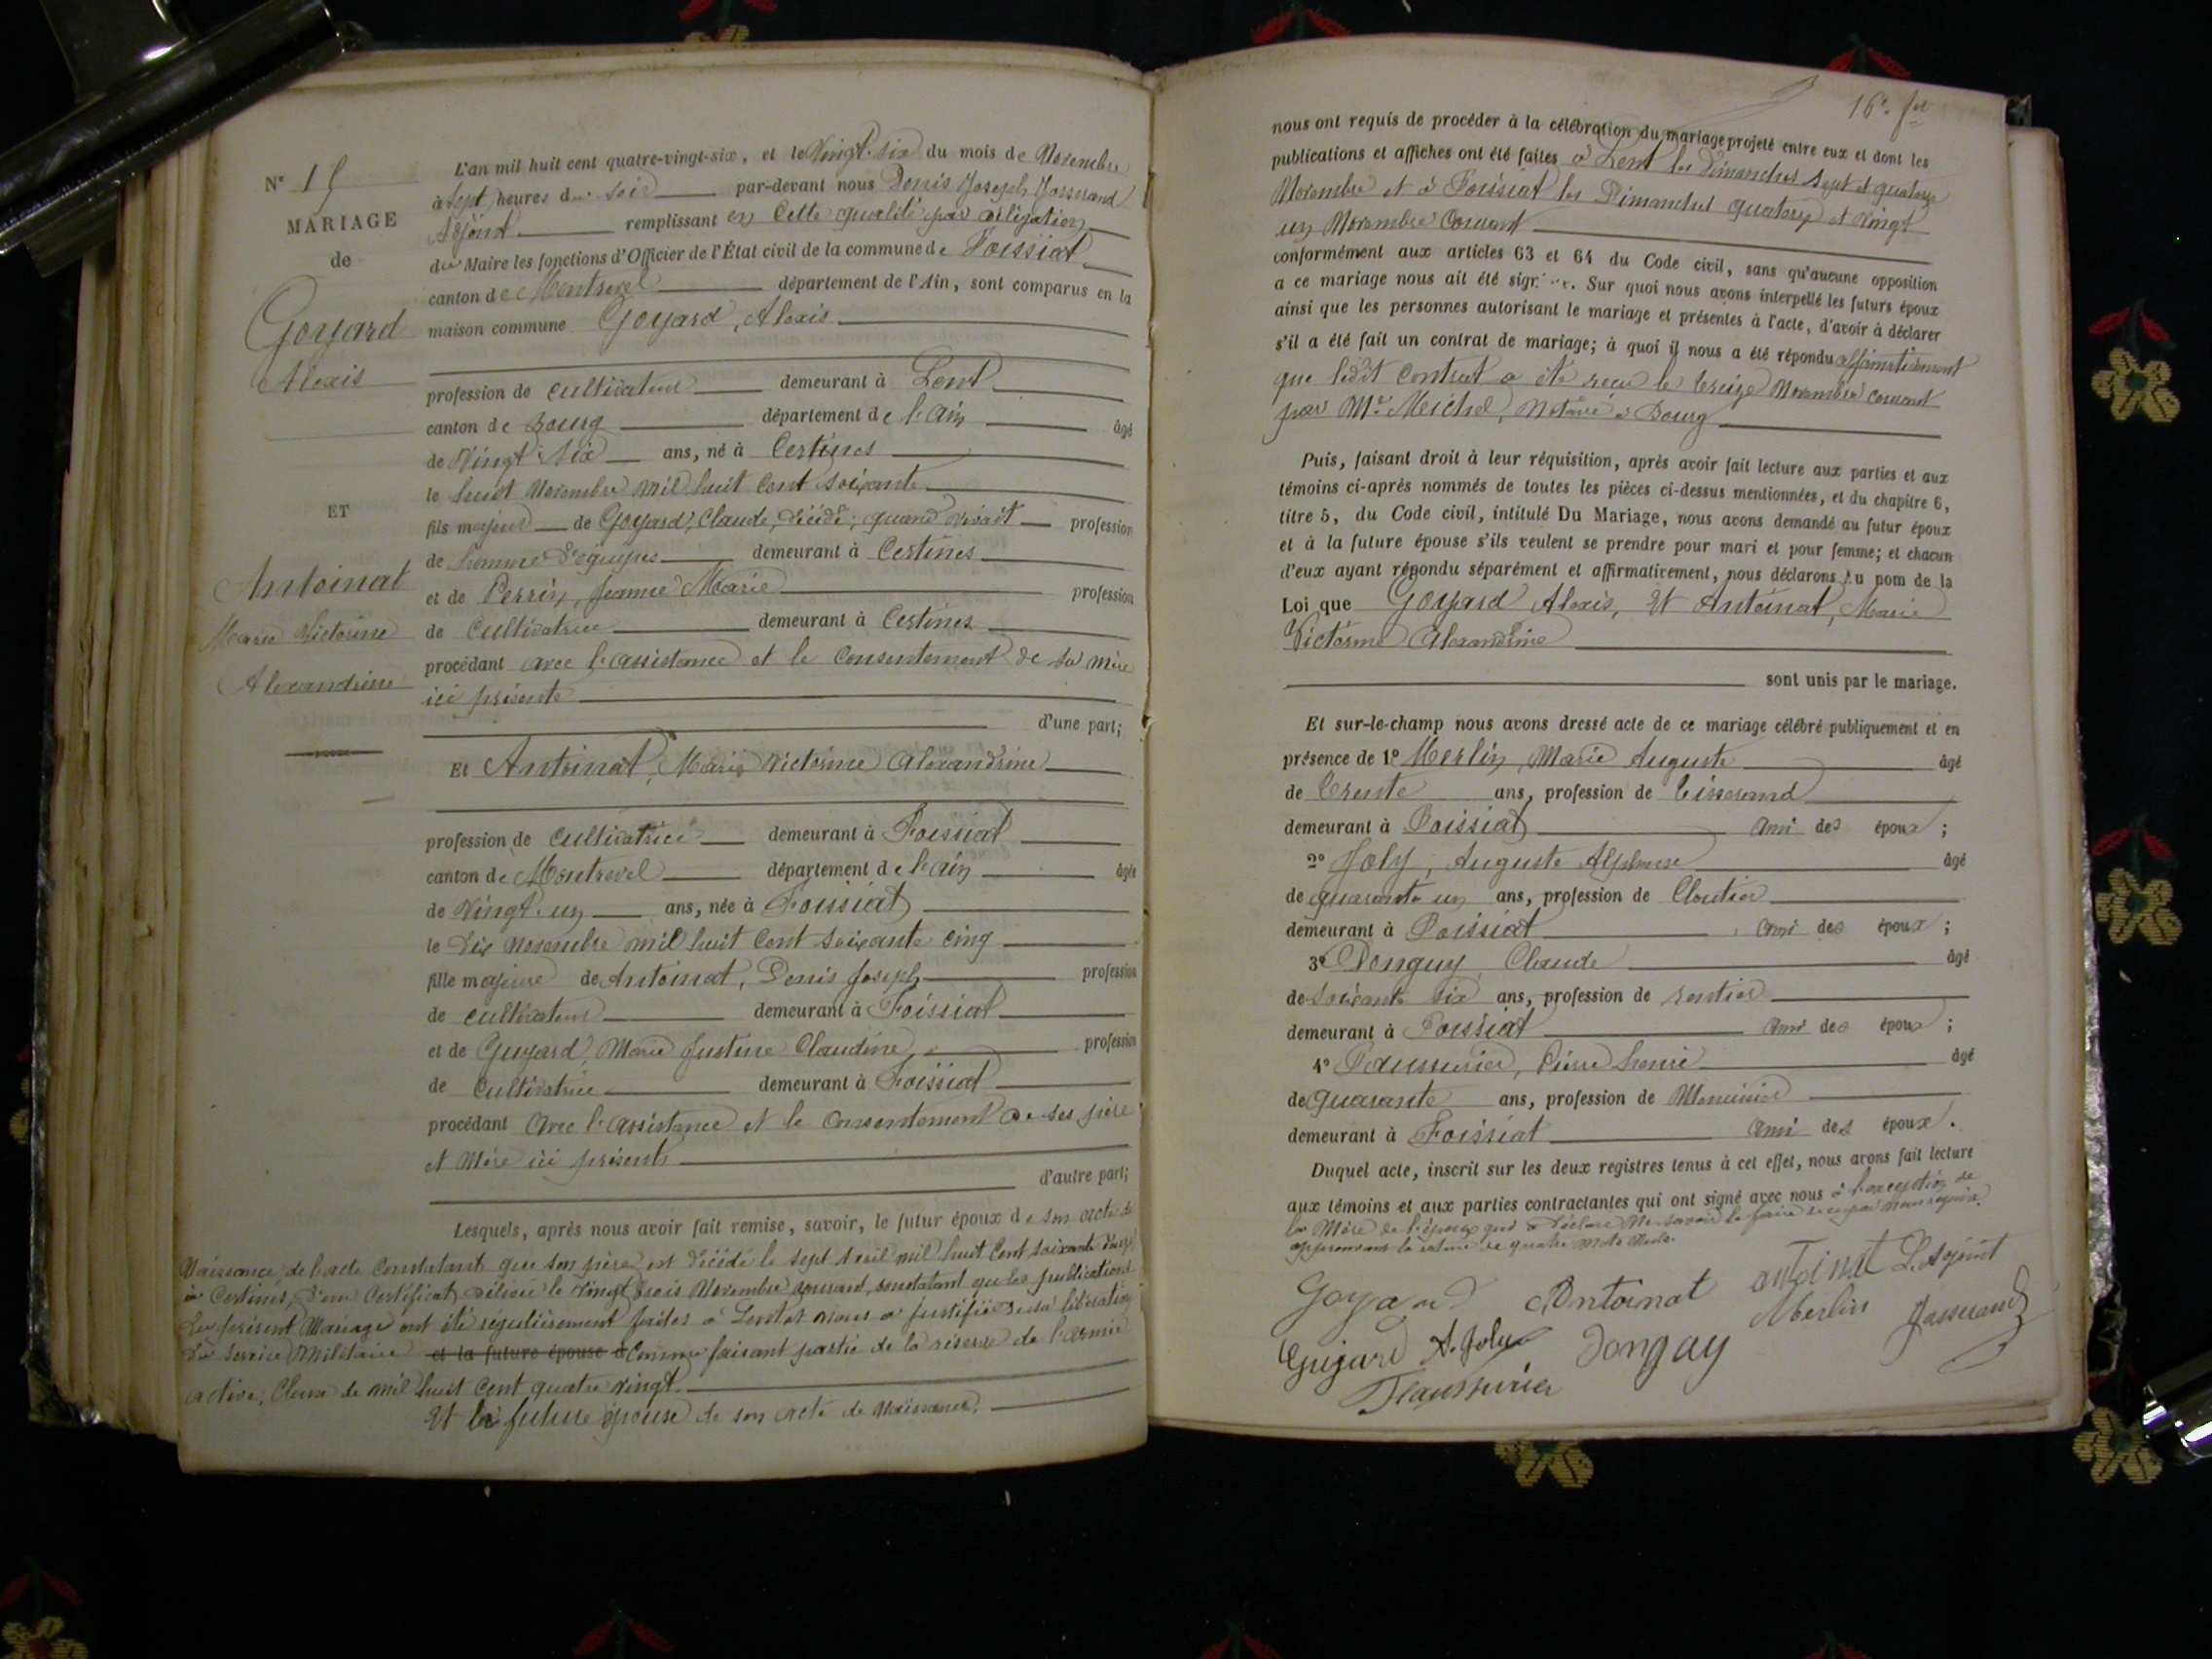 N° 15
MARIAGE
de
Goyard
Alexis
ET
Antoinat
Marie Victorine
Alexandrine
L'an mil huit cent quatre-vingt-six, et le Vingt-six du mois de Novembre
à Sept heures du soir par-devant nous Denis Joseph Josserand
Adjoint remplissant en cette qualité par délégation
du Maire les fonctions d'Officier de l'État civil de la commune de Foissiat
canton de Montrevel département de l'Ain, sont comparus en la
maison commune Goyard, Alexis
profession de cultivateur demeurant à Lent
canton de Bourg département de l'Ain âgé
de Vingt-six ans, né à Certines
le huit Novembre mil huit cent soixante
fils majeur de Goyard, Claude, décédé, quand vivait profession
de homme d'équipes demeurant à Certines
et de Perrin, Jeanne Marie profession
de Cultivatrice demeurant à Certines
procédant avec l'assistance et le consentement de sa mère
ici présente
d'une part;
Et Antoinat, Marie Victorine Alexandrine
profession de cultivatrice demeurant à Foissiat
canton de Montrevel département de l'Ain âgée
de Vingt-un ans, née à Foissiat
le dix novembre mil huit cent soixante cinq
fille majeure de Antoinat, Denis Joseph profession
de cultivateur demeurant à Foissiat
et de Guyard, Marie Justine Claudine profession
de Cultivatrice demeurant à Foissiat
procédant avec l'assistance et le consentement de ses père
et mère ici présents
d'autre part;
Lesquels, après nous avoir fait remise, savoir, le futur époux de son acte de
Naissance, de l'acte constatant que son père est décédé le sept avril mil huit cent soixante
à Certines, d'un Certificat délivré le vingt trois Novembre courant, constatant que les publications
du présent Mariage ont été régulièrement faites à Lent et nous a justifié de sa libération
du service Militaire et la future épouse d comme faisant partie de la réserve de l'armée
active, classe de mil huit cent quatre vingt.
Et la future épouse de son acte de Naissance.
16e. fet
nous ont requis de procéder à la célébration du mariage projeté entre eux et dont les
publications et affiches ont été faites à Lent les dimanches sept et quatorze
Novembre et à Foissiat les Dimanches quatorze et Vingt
un Novembre Courant
conformément aux articles 63 et 64 du Code civil, sans qu'aucune opposition
a ce mariage nous ait été sign. Sur quoi nous avons interpellé les futurs époux
ainsi que les personnes autorisant le mariage et présentes à l'acte, d'avoir à déclarer
s'il a été fait un contrat de mariage; à quoi il nous a été répondu affirmativement
que ledit contrat a été reçu le treize Novembre courant
par Me Michel, Notaire à Bourg
Puis, faisant droit à leur réquisition, après avoir fait lecture aux parties et aux
témoins ci-après nommés de toutes les pièces ci-dessus mentionnées, et du chapitre 6,
titre 5, du Code civil, intitulé Du Mariage, nous avons demandé au futur époux
et à la future épouse s'ils veulent se prendre pour mari et pour femme; et chacun
d'eux ayant répondu séparément et affirmativement, nous déclarons au nom de la
Loi que Goyard Alexis, Et Antoinat, Marie
Victorine Alexandrine
sont unis par le mariage.
Et sur-le-champ nous avons dressé acte de ce mariage célébré publiquement et en
présence de 1° Merlin, Marie Auguste âgé
de trente ans, profession de tisserand
demeurant à Foissiat ami des époux ;
2° Joly, Auguste Alphonse âgé
de quarante un ans, profession de Cloutier
demeurant à Foissiat ami des époux ;
3° Donguy Claude âgé
de soixante six ans, profession de rentier
demeurant à Foissiat ami des époux ;
4° Faussurier, Pierre henri âgé
de quarante ans, profession de Menuisier
demeurant à Foissiat ami des époux.
Duquel acte, inscrit sur les deux registres tenus à cet effet, nous avons fait lecture
aux témoins et aux parties contractantes qui ont signé avec nous à l'exception de
la Mère de l'époux qui a déclaré Ne savoir le faire de ce par nous requise.
approuvant la rature de quatre mots nuls.
Goyard Antoinat antoinat L'adjoint
Guyard A. Joly Donguy Merlin Josserand